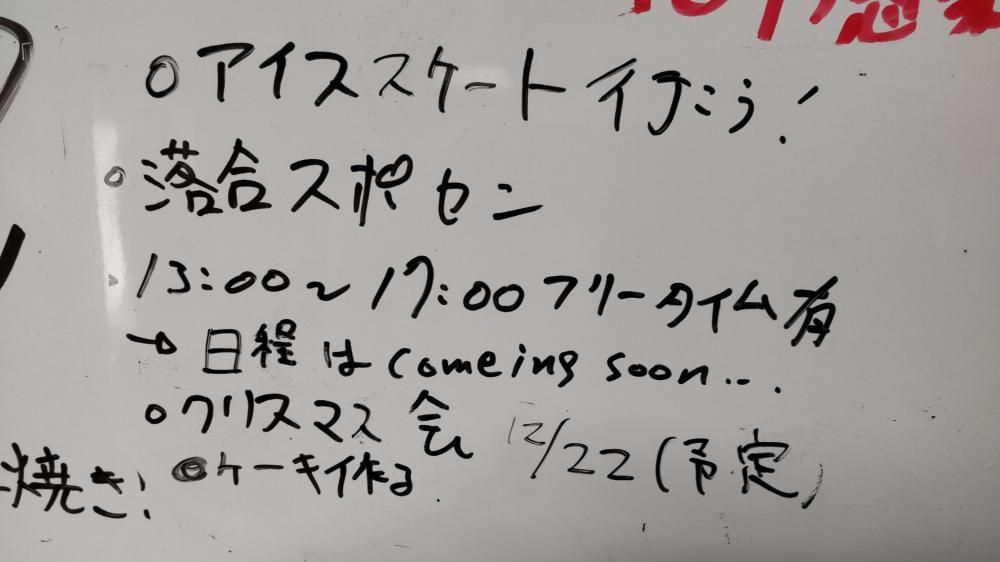 ○アイススケート行こう!
○落合スポセン
○13:00~17:00フリータイム有
→日程はcomeing soon...
○クリスマス会 12/22(予定)
◎ケーキ作る
焼き!